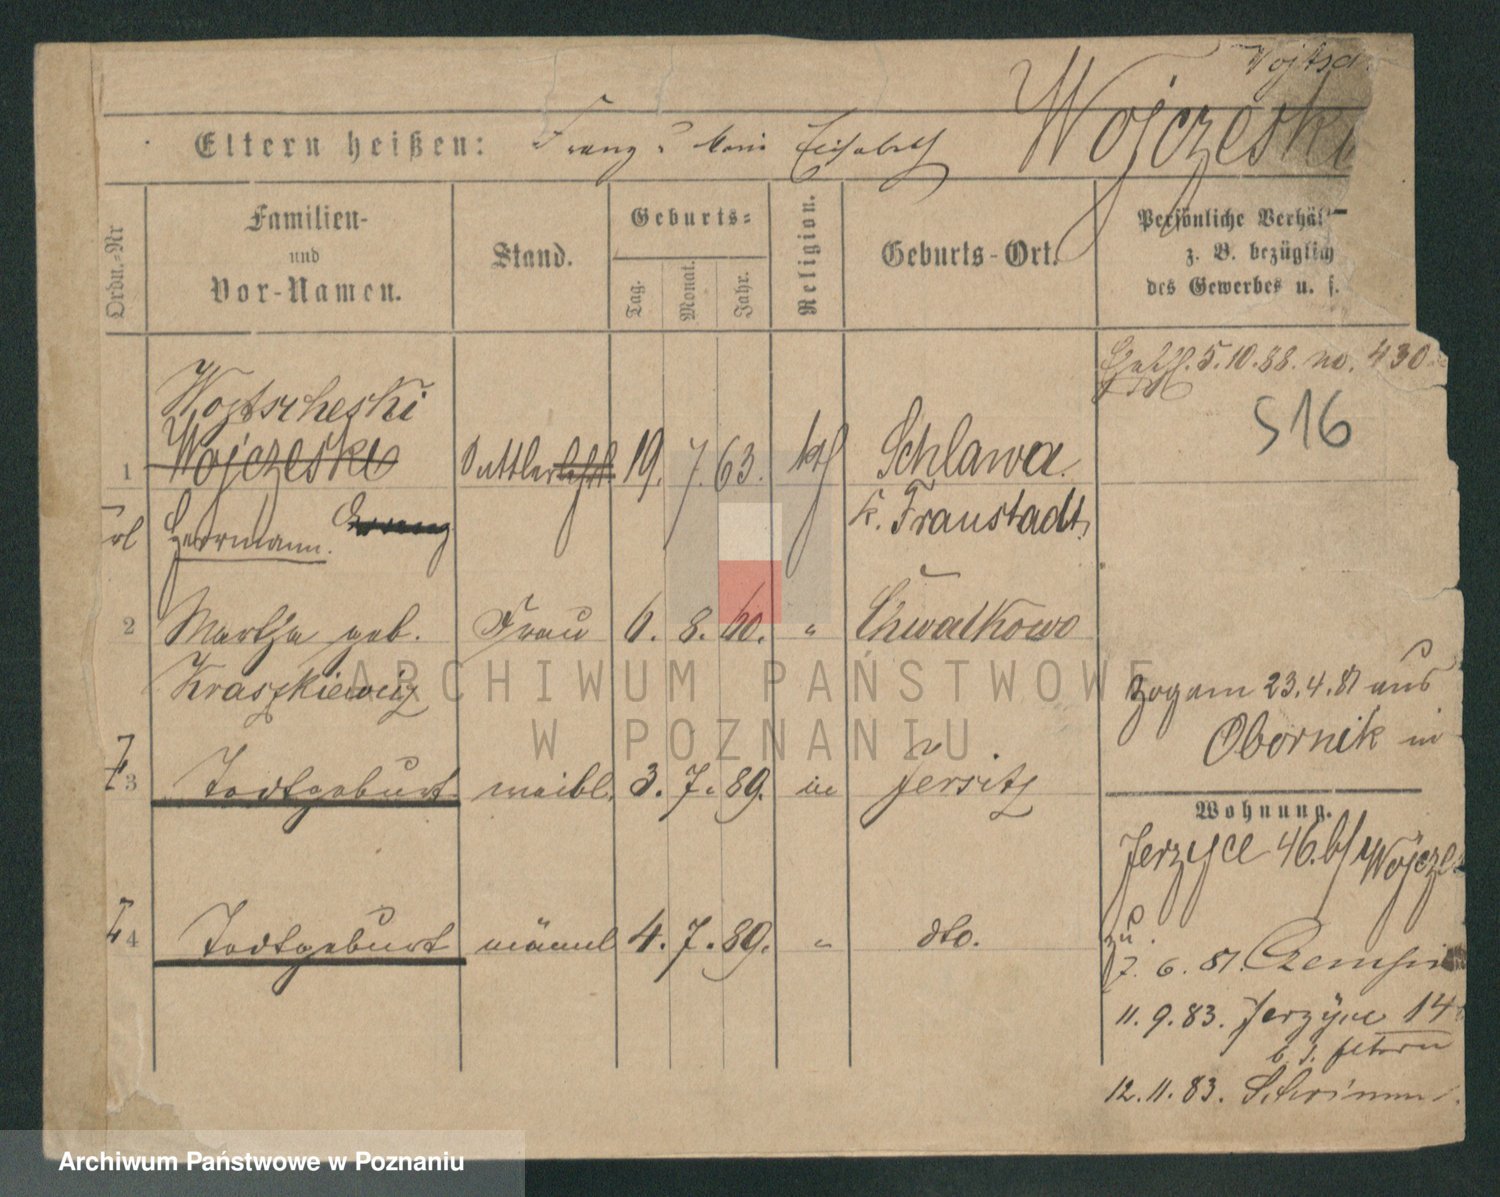 Wojtsch
Wojczeski
Eltern heißen: Franz u Marie Elisabeth
Ordn.-Nr
Familien-
und
Vor-Namen.
Stand.
Geburts-
Tag.
Monat.
Jahr.
Religion.
Geburts-Ort.
Persönliche Verhäl
z. B. bezüglich
des Gewerbes u. s.
5.10.88. no. 430
S16
Woytscheski
1 Wojczeski Sattler 19. 7. 63. kth Schlawa.
Herrmann. k. Fraustadt.
2 Martha geb. Frau 6. 8. 60. " Chwalkowo
Kraszkiewicz
3 Todtgeburt weibl. 3. 7. 89. Jersitz
4 Todtgeburt männl 4. 7. 89. " dto.
Zogam 23.4.81 aus
Obornik in
Wohnung.
Jerzyce 46. b/ Wojcze
zu
7. 6. 81. Czempin
11. 9. 83. Jerzyce 14
b. d. Eltern
12. 11. 83. Schrimm
ARCHIWUM PAŃSTWOWE
W POZNANIU
Archiwum Państwowe w Poznaniu